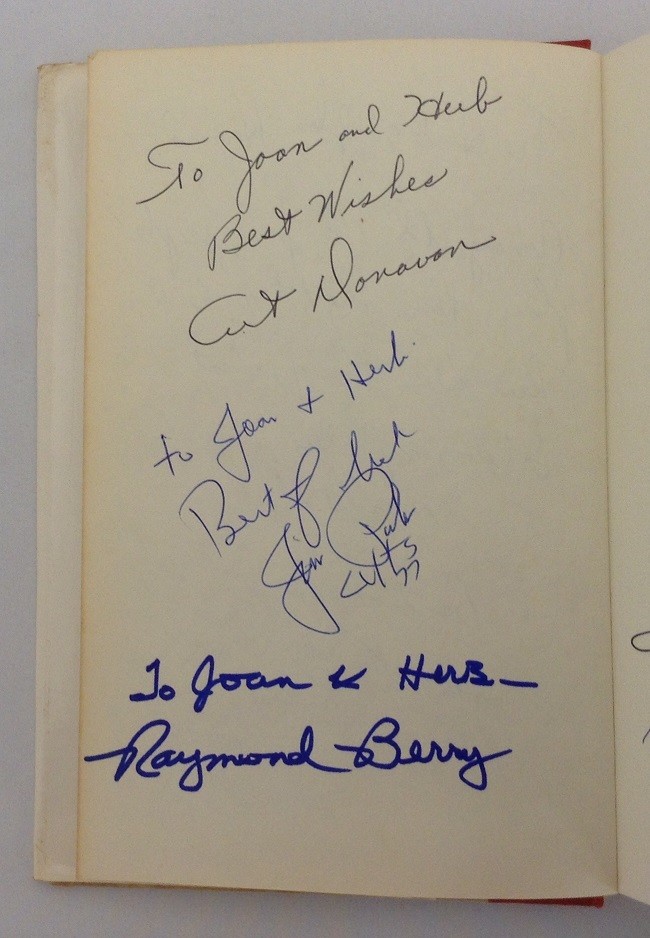 To Joan and Herb
Best Wishes
Art Donovan
to Joan + Herb.
Best of luck
Jim Parker
Colts
77
To Joan & Herb —
Raymond Berry